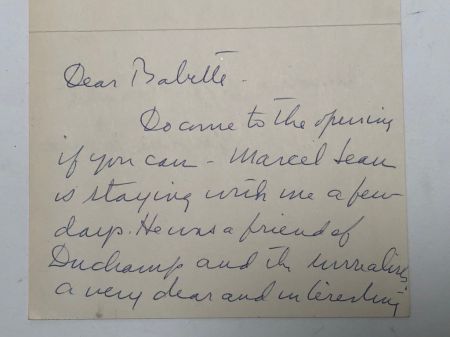 Dear Babette -
Do come to the opening
if you can - Marcel Jean
is staying with me a few
days. He was a friend of
Duchamp and the surrealists
a very dear and interesting